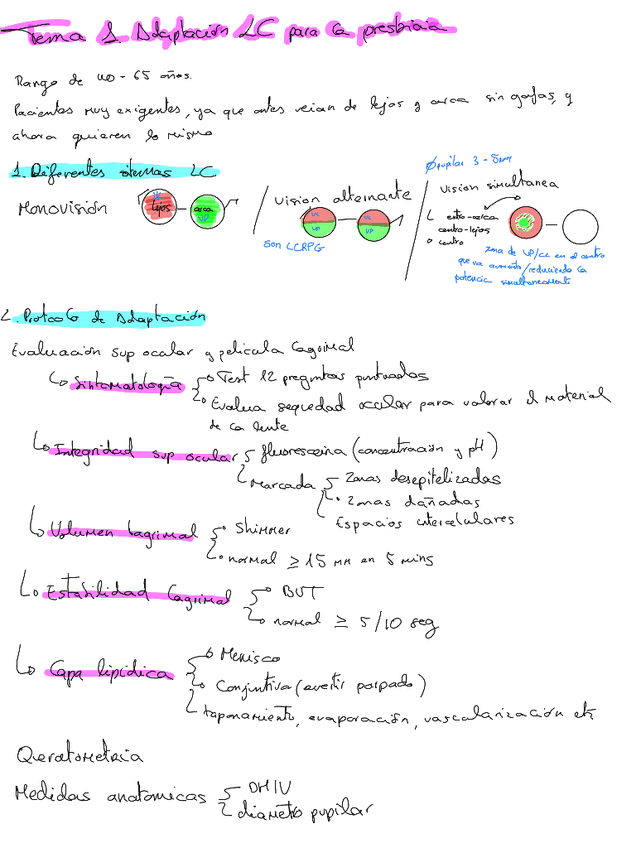 Tema 1. Adaptación LC para la presbicia
Rango de 40 - 65 años.
Pacientes muy exigentes, ya que antes veian de lejos y cerca sin gafas, y
ahora quieren lo mismo
1. Diferentes sistemas LC
Monovisión
VL
lejos
cerca
VP
/ vision alternante
VL
VP
VL
VP
son LCRPG
Øpupilar 3 - 5mm
/ Vision simultanea
centro-cerca
centro-lejos
centro
zona de VP/VL en el centro
que va aumento/reduciendo la
potencia simultaneamente
2. Protocolo de Adaptación
Evaluación sup ocular y pelicula lagrimal
Sintomatología
Test 12 preguntas puntuadas
Evalua sequedad ocular para valorar el material
de la lente
Integridad sup ocular
fluoresceina (concentración y pH)
Marcada
Zonas desepitelizadas
Zonas dañadas
Espacios intercelulares
Volumen lagrimal
Shirmer
normal ≥ 15 mm en 5 mins
Estabilidad lagrimal
BUT
normal ≥ 5/10 seg
Capa lipídica
Menisco
Conjuntiva (evertir parpado)
taponamiento, evaporación, vascularización etc
Queratometria
Medidas anatomicas
DHIV
diametro pupilar